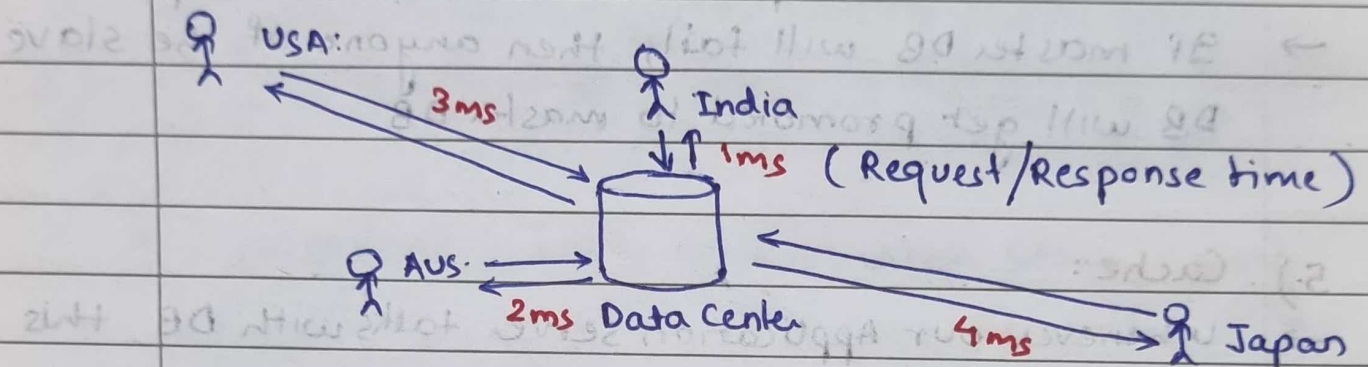 USA:
3ms
India
1ms (Request/Response time)
AUS.
2ms Data Center
4ms
Japan